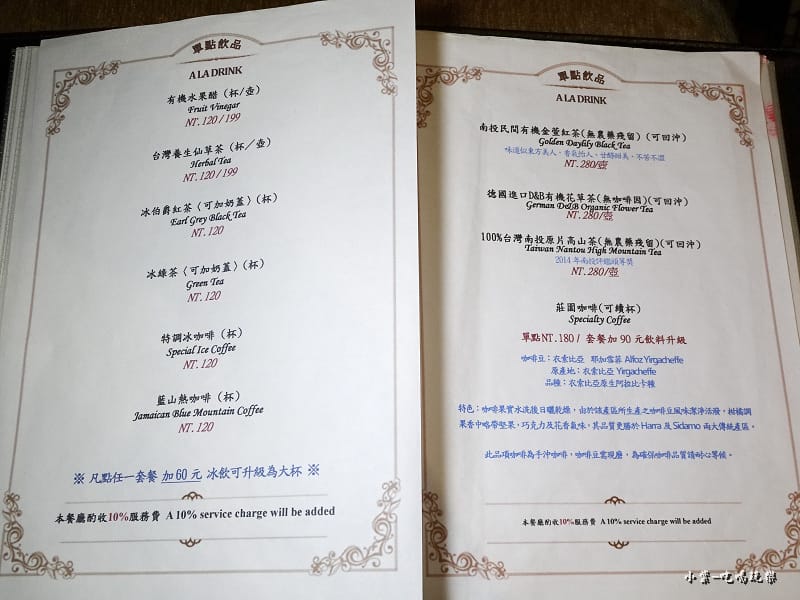 單點飲品
A LA DRINK
有機水果醋（杯/壺）
Fruit Vinegar
NT. 120 / 199
台灣養生仙草茶（杯／壺）
Herbal Tea
NT. 120 / 199
冰伯爵紅茶〈可加奶蓋〉（杯）
Earl Grey Black Tea
NT. 120
冰綠茶〈可加奶蓋〉（杯）
Green Tea
NT. 120
特調冰咖啡（杯）
Special Ice Coffee
NT. 120
藍山熱咖啡（杯）
Jamaican Blue Mountain Coffee
NT. 120
※ 凡點任一套餐 加 60 元 冰飲可升級為大杯 ※
本餐廳酌收10%服務費 A 10% service charge will be added
單點飲品
A LA DRINK
南投民間有機金萱紅茶(無農藥殘留)(可回沖)
Golden Daylily Black Tea
味道似東方美人，香氣怡人，甘醇甜美，不苦不澀
NT. 280/壺
德國進口D&B有機花草茶(無咖啡因)(可回沖)
German D&B Organic Flower Tea
NT. 280/壺
100%台灣南投原片高山茶(無農藥殘留)(可回沖)
Taiwan Nantou High Mountain Tea
2014 年南投評鑑頭等獎
NT. 280/壺
莊園咖啡(可續杯)
Specialty Coffee
單點NT. 180 / 套餐加 90 元飲料升級
咖啡豆：衣索比亞 耶加雪菲 Alfoz Yirgacheffe
原產地：衣索比亞 Yirgacheffe
品種：衣索比亞原生阿拉比卡種
特色：咖啡果實水洗後日曬乾燥，由於該產區所生產之咖啡豆風味潔淨活潑，柑橘調
果香中略帶堅果，巧克力及花香氣味，其品質更勝於 Harra 及 Sidamo 兩大傳統產區。
此品項咖啡為手沖咖啡，咖啡豆需現磨，為確保咖啡品質請耐心等候。
本餐廳酌收10%服務費 A 10% service charge will be added
小葉-吃喝玩樂